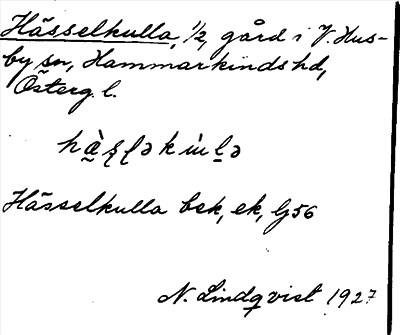 Hässelkulla, 1/2, gård i V. Hus-
by sn, Hammarkinds hd,
Österg. l.
Hässelkulla bek, ek, Gj 56
N. Lindqvist 1927